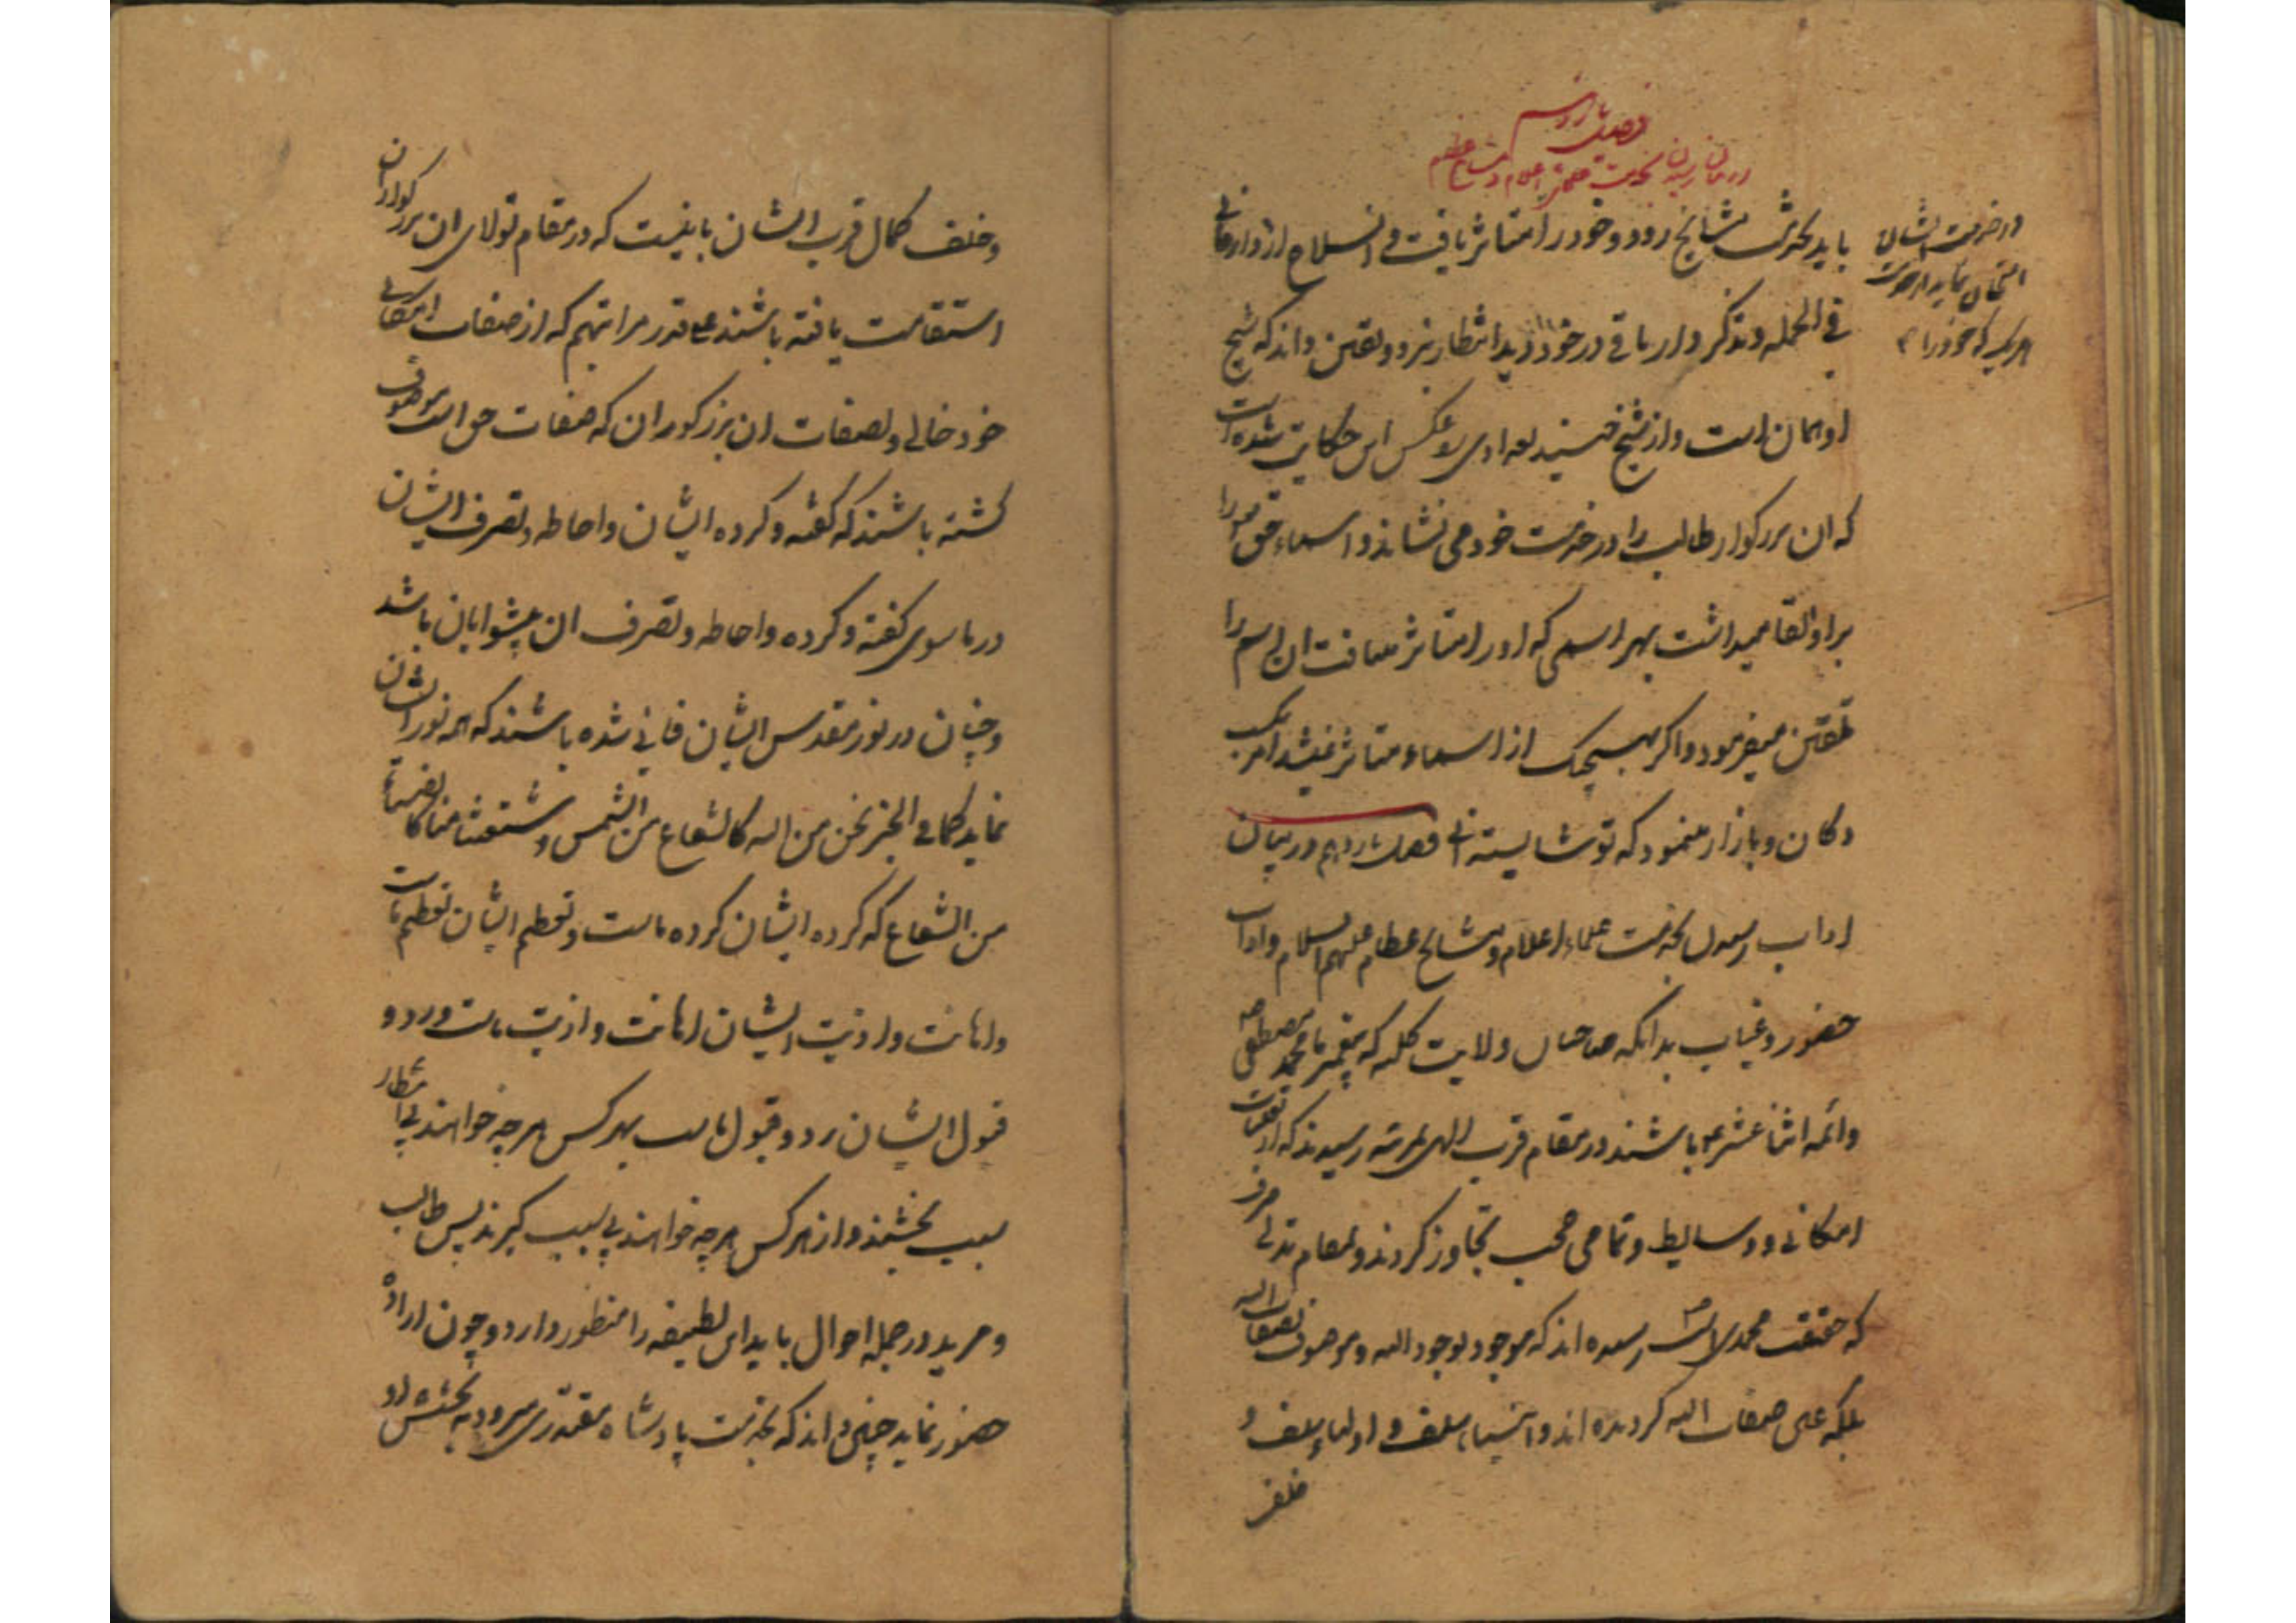 فصل یازدهم
در بیان رسیدن بخدمت علماء اعلام و مشایخ عظام
در خدمت ایشان
امتحان نماید از خدمت
هر یک که خود را
باید بخدمت مشایخ رود و خود را متاثر یافت و انسلاخ از واردات
فی الجمله و تذکر و ار باقی در خود دید انتظار نبرد و یقین داند که شیخ
او همان است و از شیخ این حکایت شده است
که ان بزرکوار طالب را در خدمت خود می نشاند و اسماء حق را
بر او القا میداشت بهر اسمی که او را متاثر میافت ان اسم را
تلقین میفرمود و اکر بهیچیک از اسماء متاثر نمیشد امر بکسب
دکان و بازار مینمود که تو شایسته انی فصل یازدهم در بیان
اداب رسیدن بخدمت علماء اعلام و مشایخ عظام علیهم السلام و اداب
حضور و غیاب بدانکه صاحبان ولایت کلیه که پیغمبر ما محمد مصطفی ص
وائمه اثنا عشر ع باشند در مقام قرب الهی بمرتبه رسیدند که از تعینات
امکانی و وسایط و تمامی حجب تجاوز کردند و بمقام تدلی صرف
که حقیقت محمدیه است رسیده اند که موجود بوجود الله و موصوف بصفات الله
بلکه عین صفات الله کردیده اند و انبیاء سلف و اولیاء سلف و
خلف
وخلف کمال قرب ایشان باینست که در مقام تولای ان بزرکواران
استقامت یافته باشند علی قدر مراتبهم که از صفات امکانی
خود خالی و بصفات ان بزرکوران که صفات حق است موصوف
کشته باشند که کفته و کرده ایشان و احاطه و تصرف ایشان
در ما سوی کفته و کرده و احاطه و تصرف ان پیشوایان باشد
و چنان در نور مقدس ایشان فانی شده باشند که همه نور ایشان
نماید کما فی الخبر نحن من الله کالشعاع من الشمس و شیعتنا منا کالضیاء
من الشعاع که کرده ایشان کرده ماست و تعظیم ایشان تعظیم ماست
و اهانت و اذیت ایشان اهانت و اذیت ماست و رد و
قبول ایشان رد و قبول ماست بهر کس هر چه خواهند بی انتظار
سبب بخشند و از هر کس هر چه خواهند بی سبب کیرند پس طالب
و مرید در جمله احوال باید این لطیفه را منظور دارد و چون اراده
حضور نماید چنین داند که بخدمت پادشاه مقتدری میرود که بخشش او